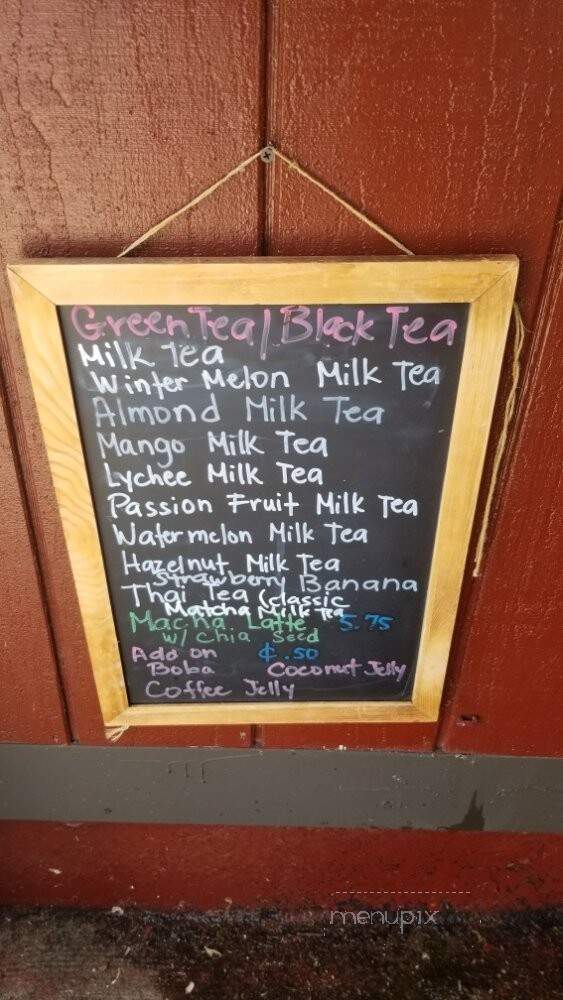 Green Tea / Black Tea
Milk Tea
Winter Melon Milk Tea
Almond Milk Tea
Mango Milk Tea
Lychee Milk Tea
Passion Fruit Milk Tea
Watermelon Milk Tea
Hazelnut Milk Tea
Strawberry Banana
Thai Tea (classic
Matcha Milk Tea
Macha Latte 5.75
w/ Chia Seed
Add on ¢.50
Boba Coconut Jelly
Coffee Jelly
menupix